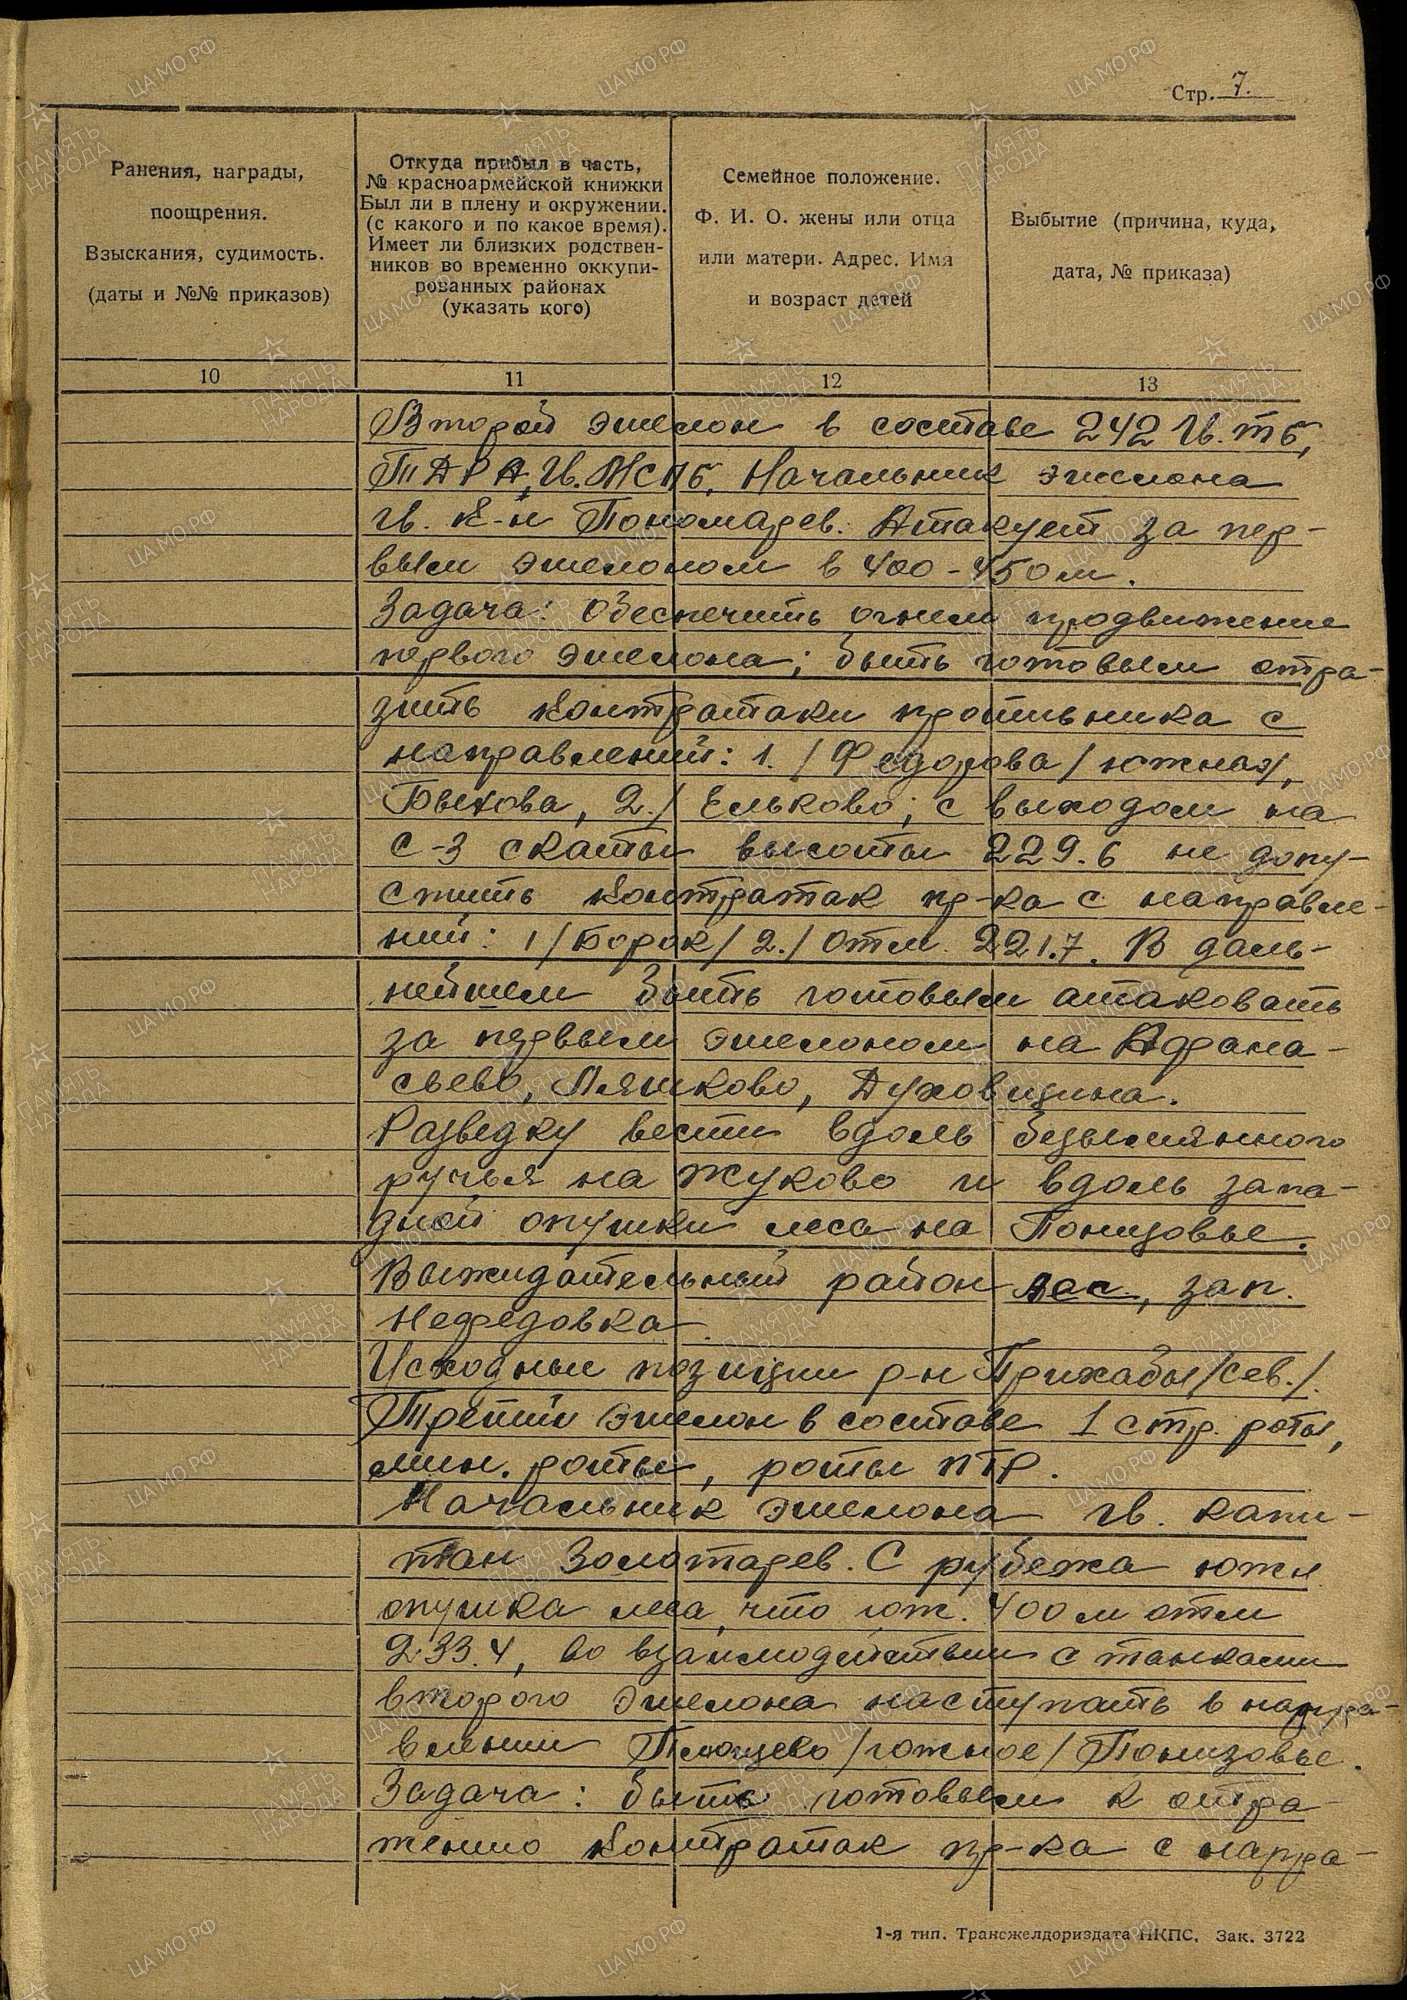 Стр. 7.
Ранения, награды,
поощрения.
Взыскания, судимость.
(даты и №№ приказов)
Откуда прибыл в часть,
№ красноармейской книжки
Был ли в плену и окружении.
(с какого и по какое время).
Имеет ли близких родствен-
ников во временно оккупи-
рованных районах
(указать кого)
Семейное положение.
Ф. И. О. жены или отца
или матери. Адрес. Имя
и возраст детей
Выбытие (причина, куда,
дата, № приказа)
10 11 12 13
Второй эшелон в составе 242 Гв. тб,
ТДРА, Гв. МСПБ. Начальник эшелона
гв. к-н Пономарев. Атакует за пер-
вым эшелоном в 400-450 м.
Задача: Обеспечить огнем продвижение
первого эшелона; быть готовым отра-
зить контратаки противника с
направлений: 1./ Федорова /южная/,
Быкова, 2./ Ельково; с выходом на
С-З скаты высоты 229.6 не допу-
стить контратак пр-ка с направле-
ний: 1/ Борок/ 2./ Отм. 221.7. В даль-
нейшем быть готовым атаковать
за первым эшелоном на Афана-
сьево, Пляшково, Духовщина.
Разведку вести вдоль безымянного
ручья на Жуково и вдоль запа-
дной опушки леса на Понизовье.
Выжидательный район лес, зап.
Нефедовка.
Исходные позиции р-н Прихабы /сев./.
Третий эшелон в составе 1 стр. роты,
мин. роты, роты ПТР.
Начальник эшелона гв. капи-
тан Золотарев. С рубежа южн
опушка леса, что юж. 400 м отм
233.4, во взаимодействии с танками
второго эшелона наступать в напра-
влении Плющево /южное/ Понизовье.
Задача: быть готовым к отра-
жению контратак пр-ка с напра-
1-я тип. Трансжелдориздата НКПС. Зак. 3722
ЦАМО.РФ
ПАМЯТЬ НАРОДА